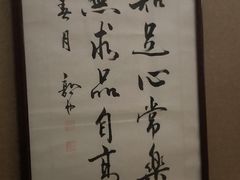 知足心常樂
無求品自高
春月